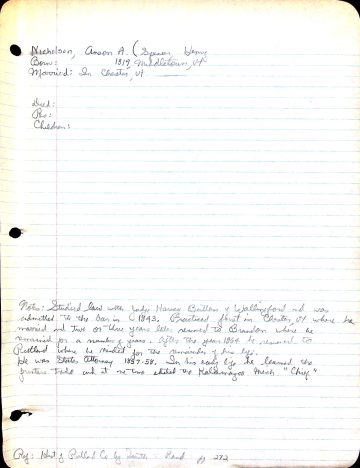 Nicholson, Anson A. (Spencer, Henry
Born: 1819, Middletown, Vt
Married: In Chester, Vt
died:
Res:
Children:
Notes: Studied law with Judge Harvey Button of Wallingford and was
admitted to the bar in 1843. Practiced first in Chester, Vt where he
married and two or three years later removed to Brandon where he
remained for a number of years. After the year 1860 he removed to
Rutland where he resided for the remainder of his life.
He was States Attorney 1857-58. In his early life he learned the
printers trade and at one time edited the
Ref: Hist of Rutland Co by Smith & Rand p 272